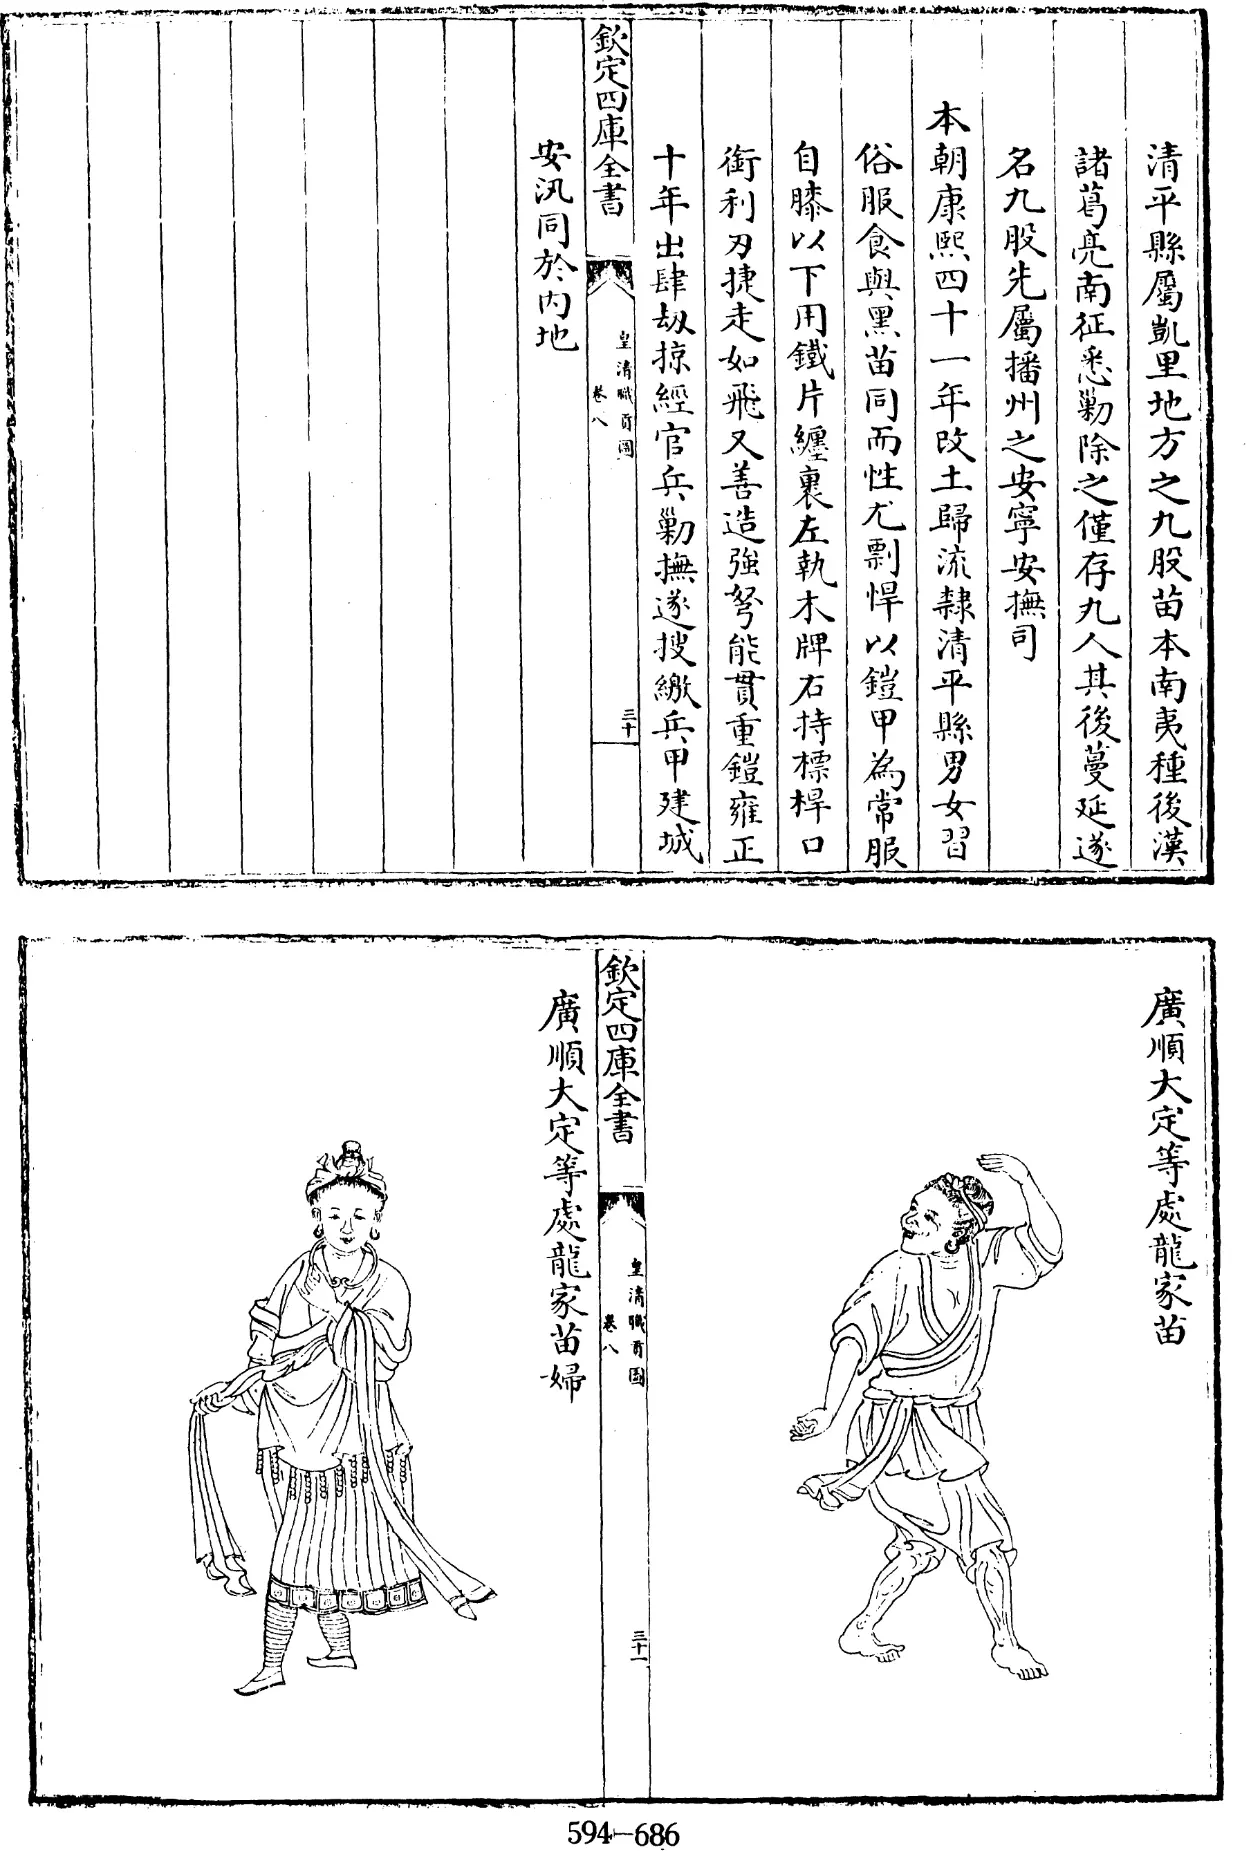 清平縣屬凱里地方之九股苗本南夷種後漢
諸葛亮南征悉勦除之僅存九人其後蔓延遂
名九股先屬播州之安寧安撫司
本朝康熙四十一年改土歸流隸清平縣男女習
俗服食與黑苗同而性尤剽悍以鎧甲為常服
自膝以下用鐵片纏裹左執木牌右持標桿口
銜利刃捷走如飛又善造強弩能貫重鎧雍正
十年出肆劫掠經官兵勦撫遂搜繳兵甲建城
欽定四庫全書
皇清職貢圖
卷八
三十
安汛同於內地
廣順大定等處龍家苗
欽定四庫全書
皇清職貢圖
卷八
三十一
廣順大定等處龍家苗婦
594-686